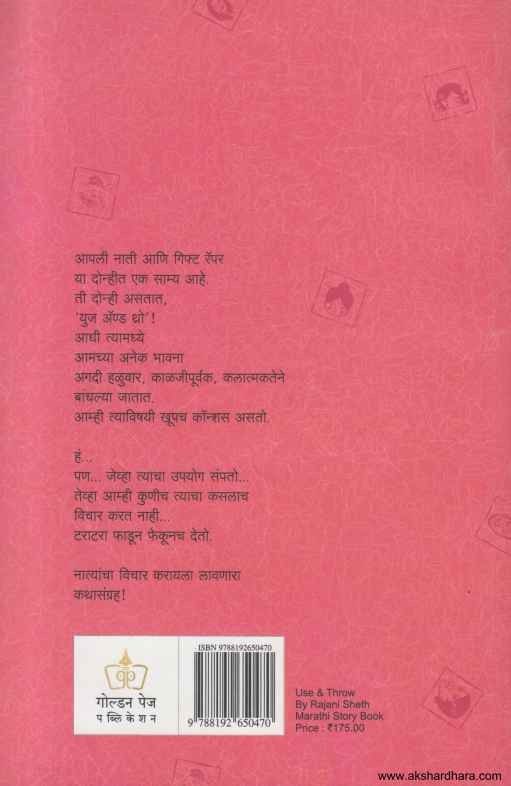 आपली नाती आणि गिफ्ट रॅपर
या दोन्हीत एक साम्य आहे.
ती दोन्ही असतात,
'युज ॲण्ड थ्रो'!
आधी त्यामध्ये
आमच्या अनेक भावना
अगदी हळुवार, काळजीपूर्वक, कलात्मकतेने
बांधल्या जातात.
आम्ही त्याविषयी खूपच कॉन्शस असतो.
हं...
पण... जेव्हा त्याचा उपयोग संपतो...
तेव्हा आम्ही कुणीच त्याचा कसलाच
विचार करत नाही...
टराटरा फाडून फेकूनच देतो.
नात्यांचा विचार करायला लावणारा
कथासंग्रह!
गोल्डन पेज
पब्लिकेशन
ISBN 9788192650470
9 788192 650470
Use & Throw
By Rajani Sheth
Marathi Story Book
Price : ₹175.00
www.akshardhara.com